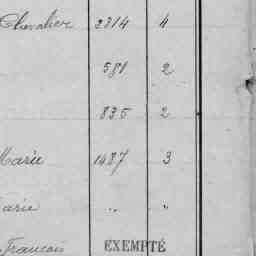 Chevalier 2314 4
581 2
835 2
Marie 1487 3
arie " "
Francois EXEMPTÉ